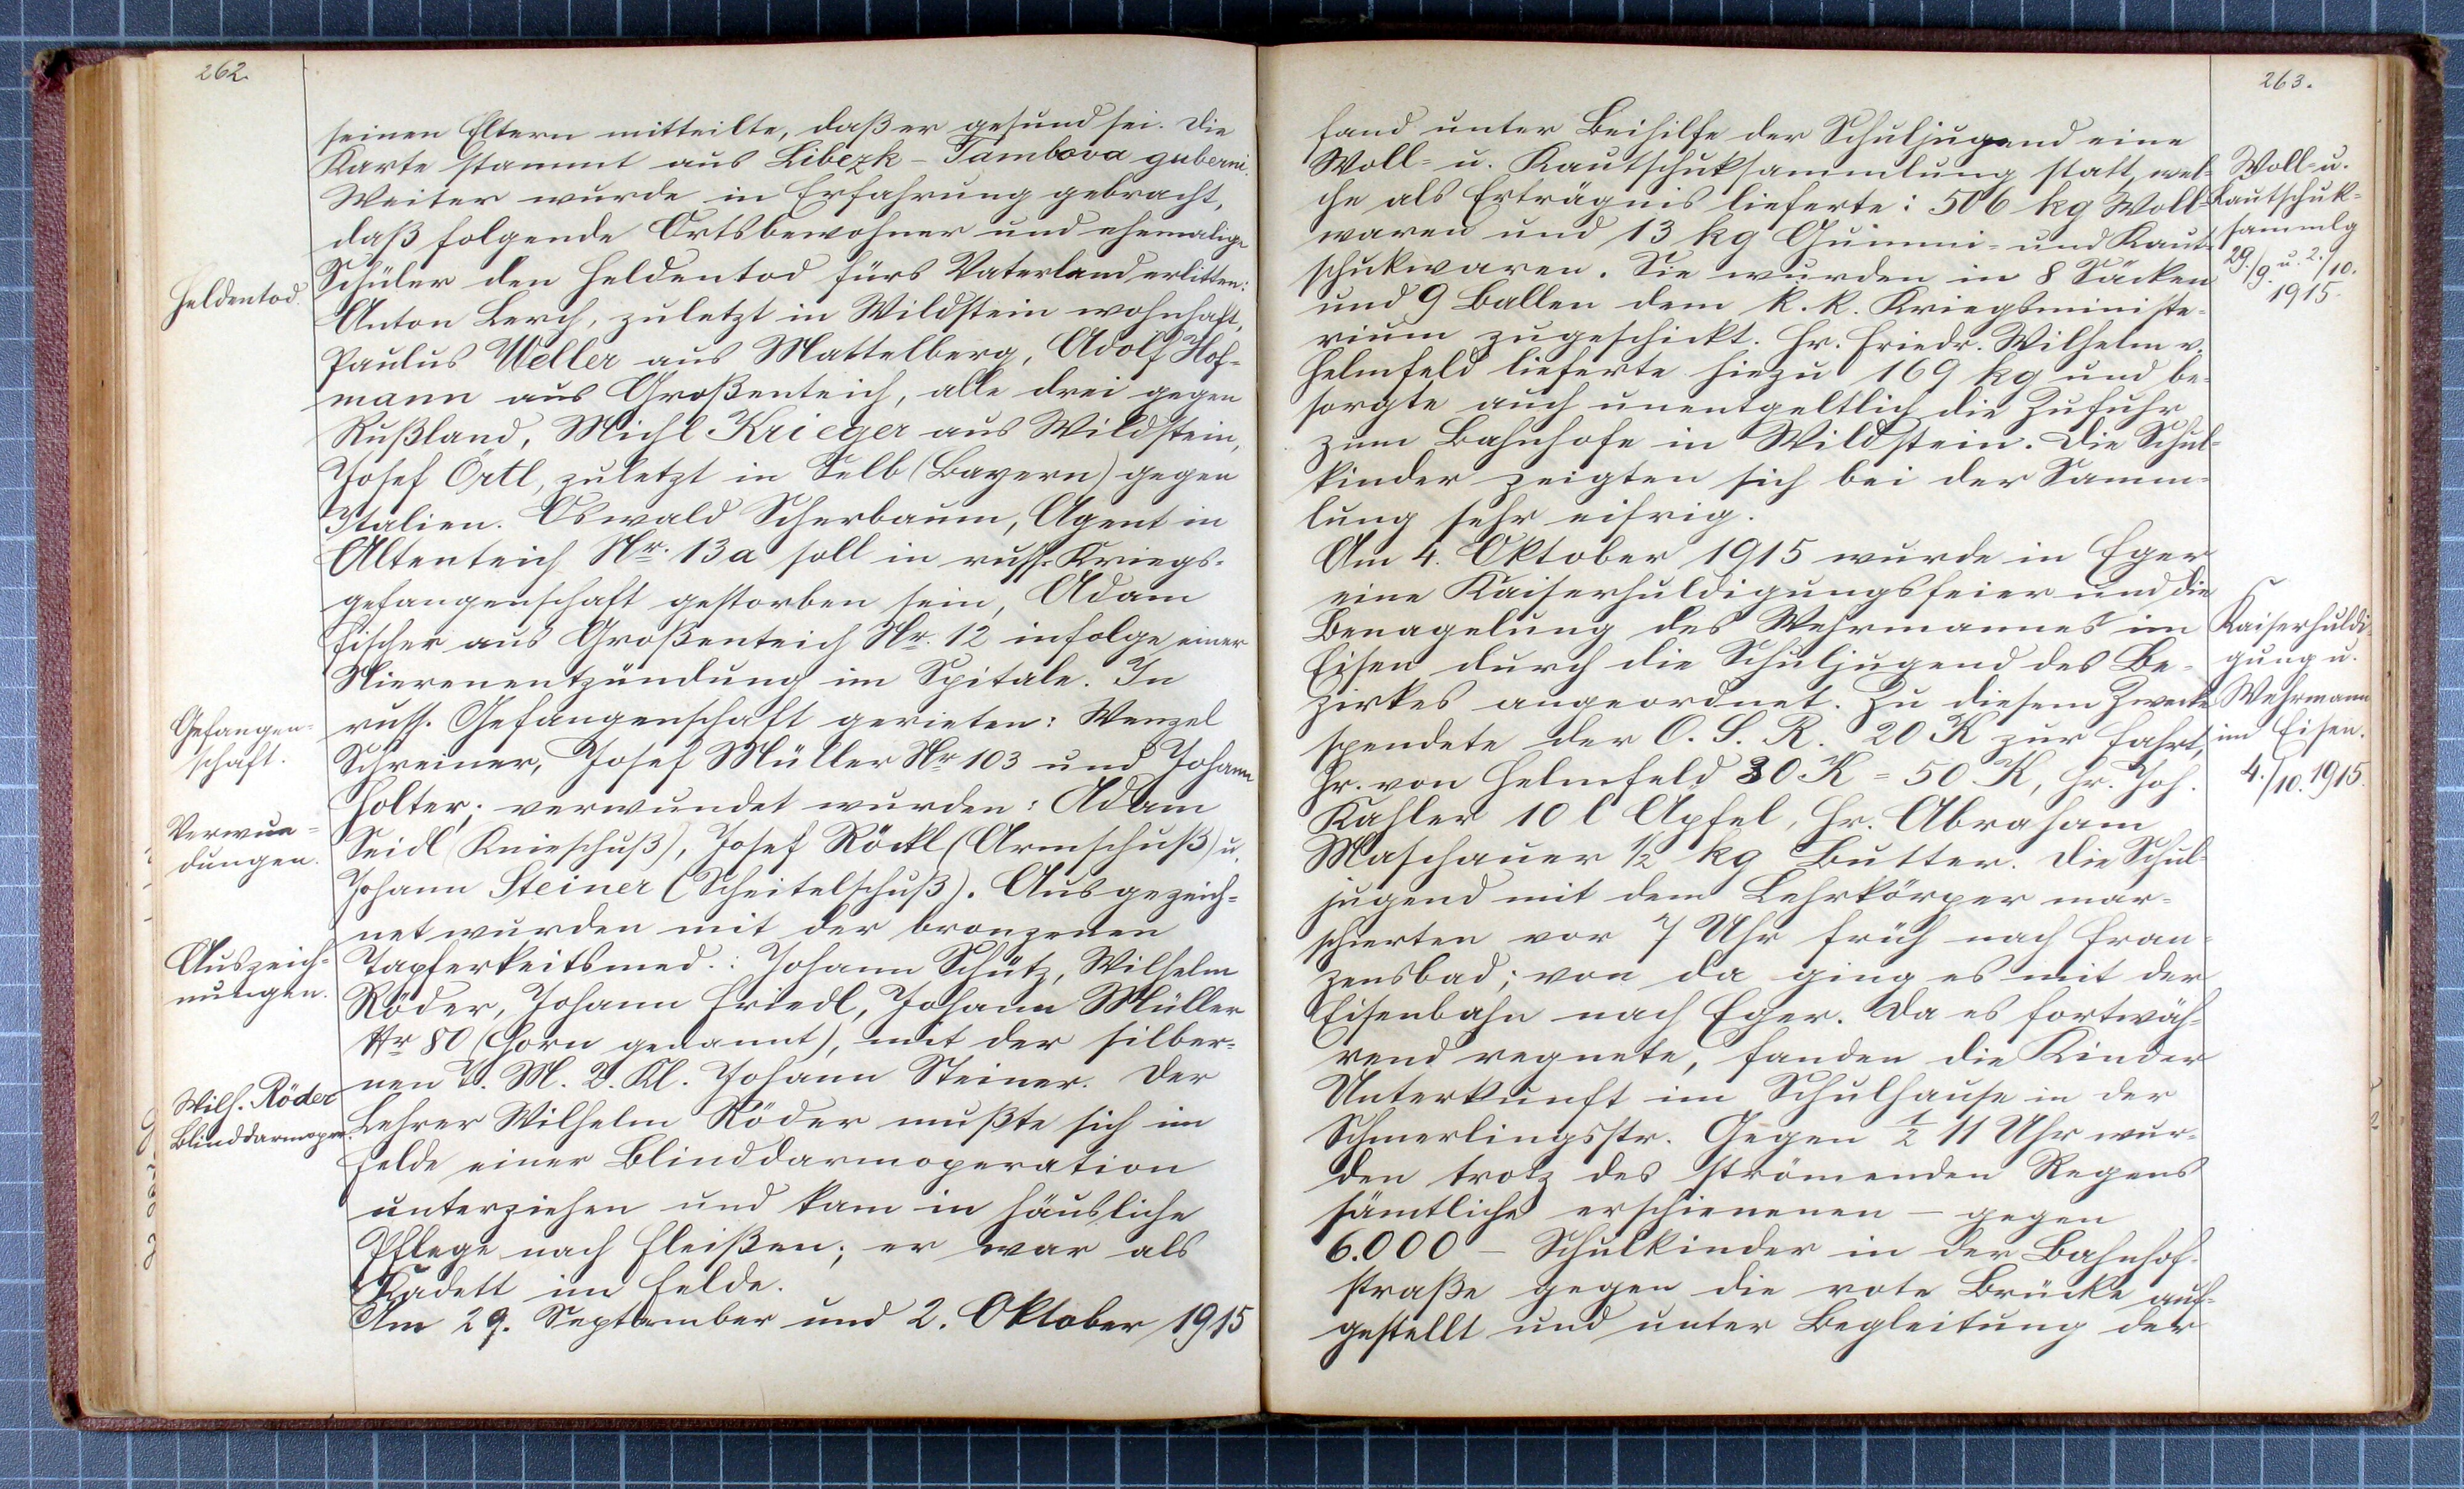 262.
seinen Eltern mitteilte, daß er gesund sei. Die
Karte stammt aus Libezk - Tambova guberni.
Weiter wurde in Erfahrung gebracht,
daß folgende Ortsbewohner und ehemalige
Heldentod.
Schüler den Heldentod fürs Vaterland erlitten:
Anton Lerch, zuletzt in Wildstein wohnhaft,
Paulus Weller aus Mattelberg, Adolf Hof-
mann aus Großenteich, alle drei gegen
Rußland, Michl Krieger aus Wildstein,
Josef Örtl, zuletzt in Selb (Bayern) gegen
Italien. Oswald Scherbaum, Agent in
Altenteich Nr. 13a soll in russ. Kriegs-
gefangenschaft gestorben sein, Adam
Fischer aus Großenteich Nr. 12 infolge einer
Nierenentzündung im Spitale. In
Gefangen-
schaft.
russ. Gefangenschaft gerieten: Wenzel
Schreiner, Josef Müller Nr 103 und Johann
Holter; verwundet wurden: Adam
Verwun-
dungen.
Seidl (Knieschuß), Josef Röckl (Armschuß) u.
Johann Steiner (Scheitelschuß). Ausgezeich-
net wurden mit der bronzenen
Auszeich-
nungen.
Tapferkeitsmed.: Johann Schütz, Wilhelm
Röder, Johann Friedl, Johann Müller
Nr 80 (Horn genannt), mit der silber-
nen T. M. 2. Kl. Johann Steiner. Der
Wilh. Röder
Blinddarmoper.
Lehrer Wilhelm Röder mußte sich im
Felde einer Blinddarmoperation
unterziehen und kam in häusliche
Pflege nach Fleißen; er war als
Kadett im Felde.
Am 29. September und 2. Oktober 1915
263.
fand unter Beihilfe der Schuljugend eine
Woll- u. Kautschuksammlung statt, wel-
che als Erträgnis lieferte: 506 kg Woll-
waren und 13 kg Gummi- und Kaut-
schukwaren. Sie wurden in 8 Säcken
und 9 Ballen dem k. k. Kriegsministe-
Woll- u.
Kautschuk-
sammlg
29./9. u. 2./10.
1915.
rium zugeschickt. Hr. Friedr. Wilhelm v.
Helmfeld lieferte hiezu 169 kg und be-
sorgte auch unentgeltlich die Zufuhr
zum Bahnhofe in Wildstein. Die Schul-
kinder zeigten sich bei der Samm-
lung sehr eifrig.
Am 4. Oktober 1915 wurde in Eger
eine Kaiserhuldigungsfeier und die
Benagelung des Wehrmannes im
Eisen durch die Schuljugend des Be-
zirkes angeordnet. Zu diesem Zwecke
spendete der O. S. R. 20 K zur Fahrt,
Hr. von Helmfeld 30 K = 50 K, Hr. Joh.
Kaiserhuldi-
gung u.
Wehrmann
im Eisen.
4./10. 1915.
Kahler 10 l Äpfel, Hr. Abraham
Maschauer 1/2 kg Butter. Die Schul-
jugend mit dem Lehrkörper mar-
schierten vor 7 Uhr früh nach Fran-
zensbad; von da ging es mit der
Eisenbahn nach Eger. Da es fortwäh-
rend regnete, fanden die Kinder
Unterkunft im Schulhause in der
Schmerlingsstr. Gegen 1/2 11 Uhr wur-
den trotz des strömenden Regens
sämtliche erschienenen - gegen
6.000 - Schulkinder in der Bahnhof-
straße gegen die rote Brücke auf-
gestellt und unter Begleitung der